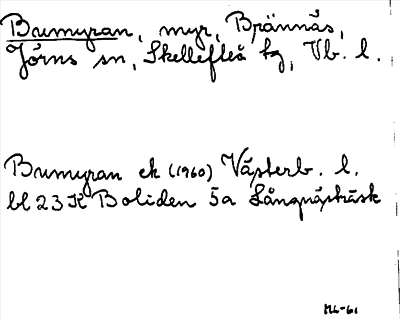 Bumyran, myr, Brännäs,
Jörns sn, Skellefteå kg, Vb. l.
Bumyran ek (1960) Västerb. l.
bl 23 K Boliden 5a Långnästräsk
ML-61